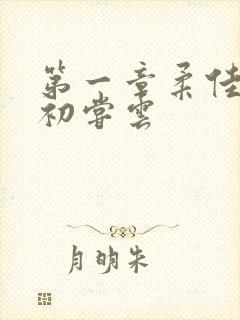 第一章柔佳
初尝雲
月明朱